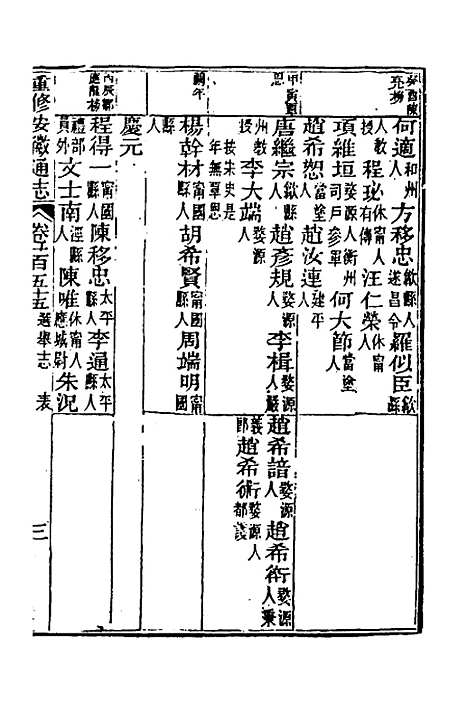 癸酉陳
亮榜
何適和州人 方移忠歙縣人遂昌令 羅似臣歙縣
人教授 程珌休甯人有傳 汪仁榮休甯人
項雖垣婺源人衡州司戶參軍 何大節當塗
趙希恕當塗 趙汝連建平
甲寅
恩
唐繼宗歙縣人 趙彥規婺源人 李楫婺源人嚴
州教授 李大端婺源人
按宋史是年無覃恩
趙希諳婺源人 趙希衛婺源人秉
義郎 趙希術婺源人都護
闕年
楊幹材甯國人 胡希賢甯國人 周端明甯國
人
慶元
丙辰鄒
應龍榜
程得一甯國縣人 陳移忠太平縣人 李通太平縣人
禮部員外 文士南涇縣人 陳唯休甯人應城尉 朱況
重修安徽通志 卷百五十五 選舉志 表 三